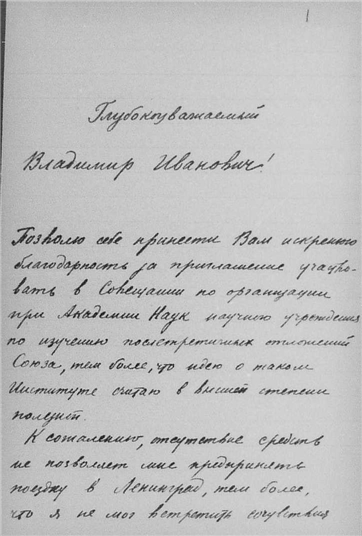 1
Глубокоуважаемый
Владимир Иванович!
Позволю себе принести Вам искреннюю
благодарность за приглашение участво-
вать в Совещании по организации
при Академии Наук научного учреждения
по изучению послетретичных отложений
Союза, тем более, что идею о таком
Институте считаю в высшей степени
полезной.
К сожалению, отсутствие средств
не позволяет мне предпринять
поездку в Ленинград, тем более,
что я не мог встретить сочувствия